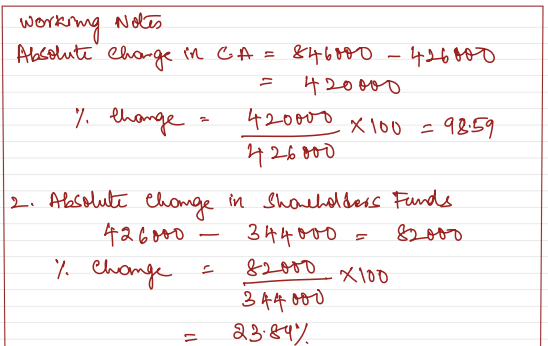 Working Notes
Absolute change in CA = 846000 - 426000
= 420000
% change = 420000/426000 × 100 = 98.59
2. Absolute change in Shareholders Funds
426000 - 344000 = 82000
% change = 82000/344000 × 100
= 23.84%